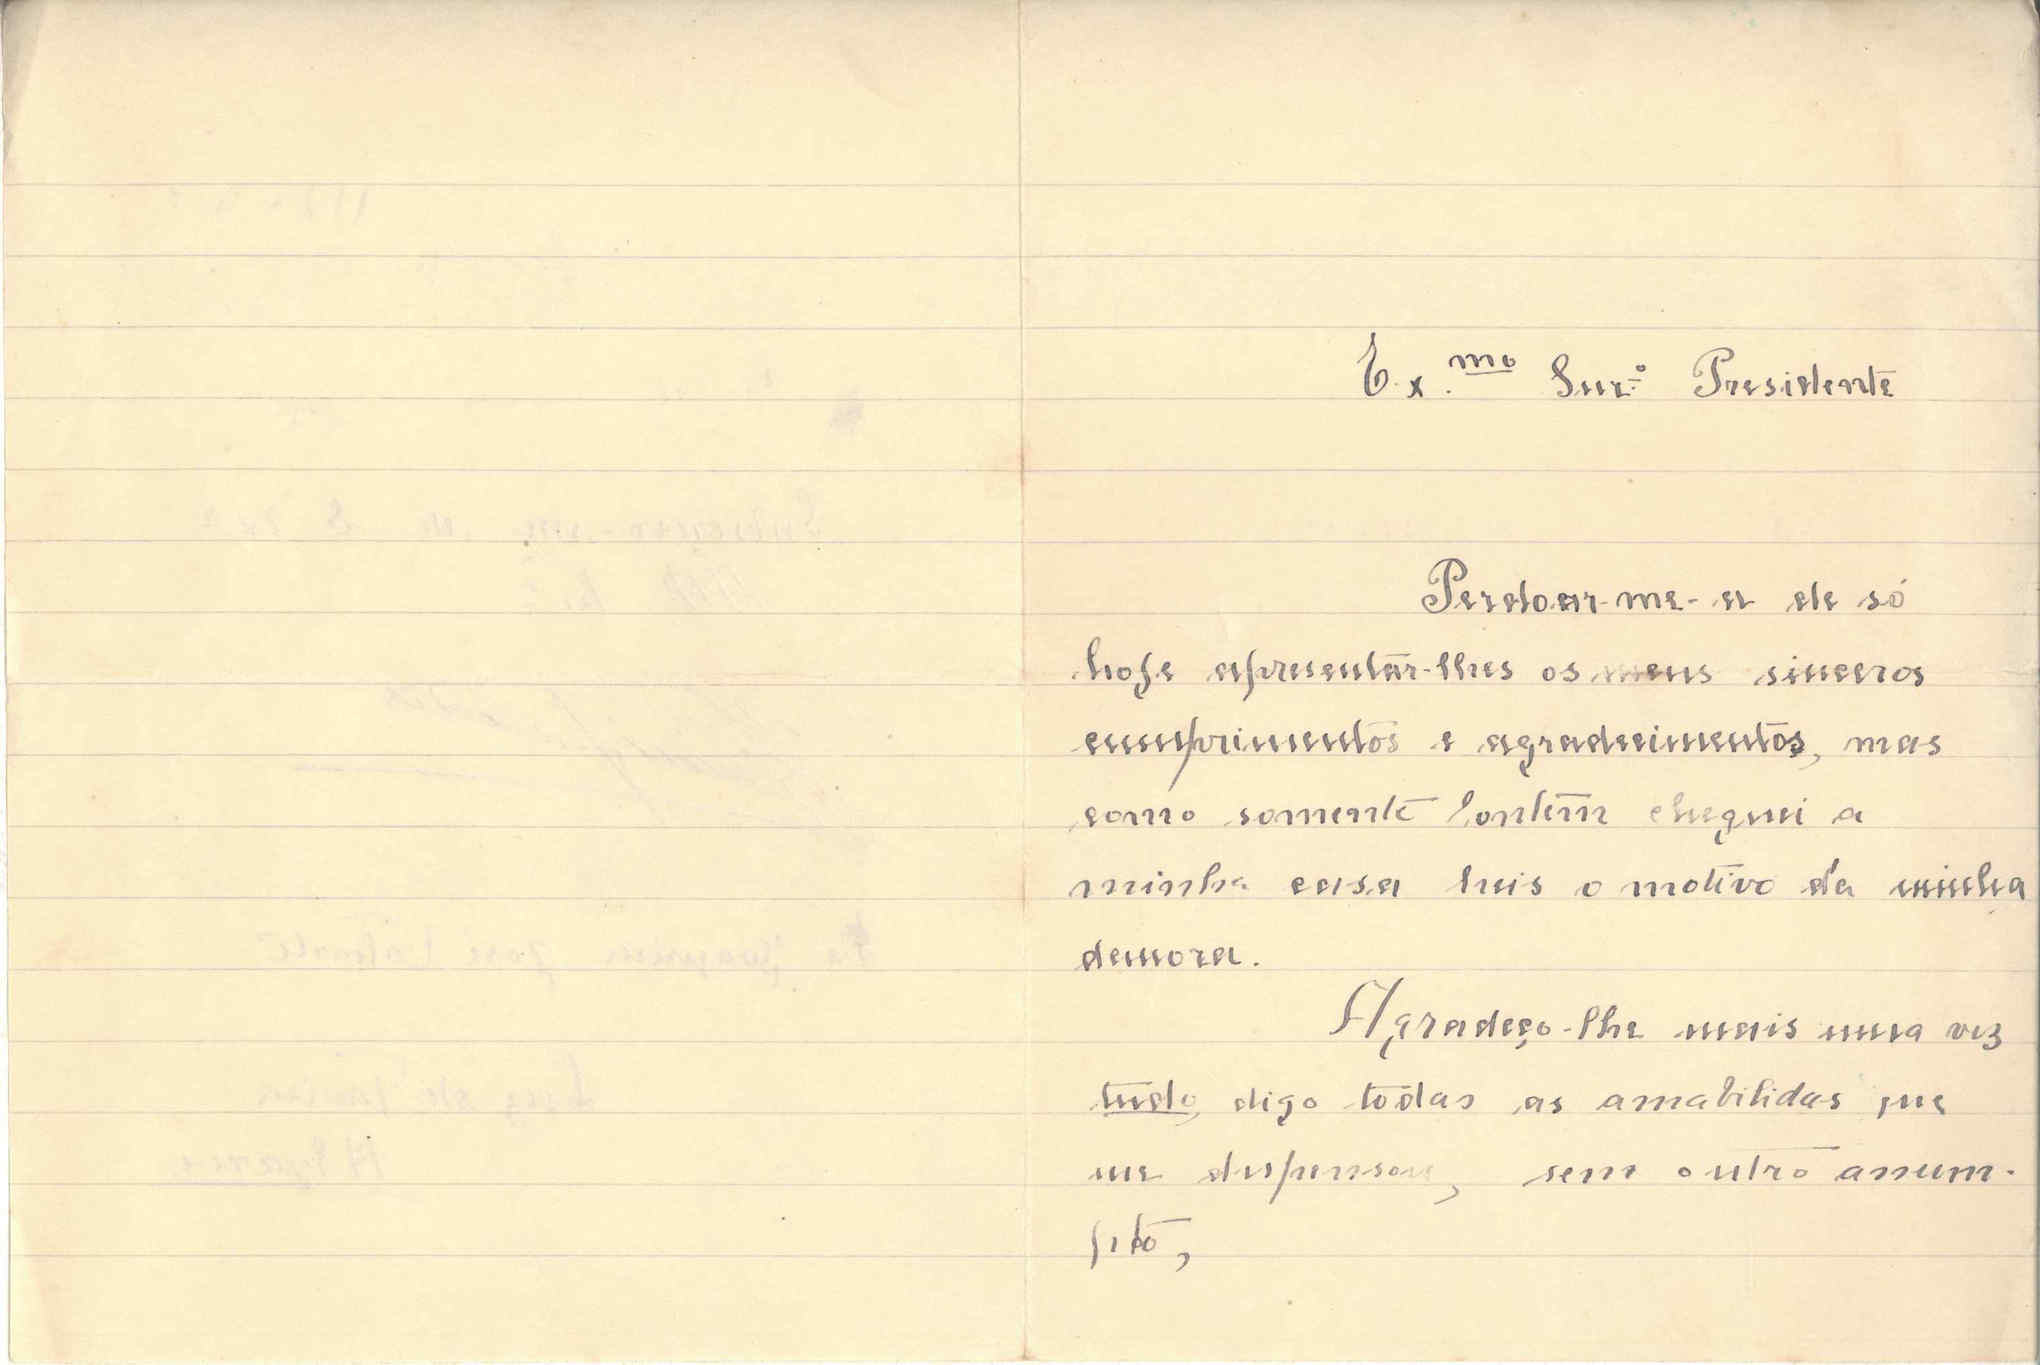 Ex.mo Snr.º Presidente
Perdoar-me-a de só
hoje apresentar-lhes os meus sinceros
cumprimentos e agradecimentos, mas
como somente hontem cheguei a
minha casa heis o motivo da minha
demora.
Agradeço-lhe mais uma vez
tudo, digo todas as amabilidas que
me dispensou, sem outro assum-
pto,